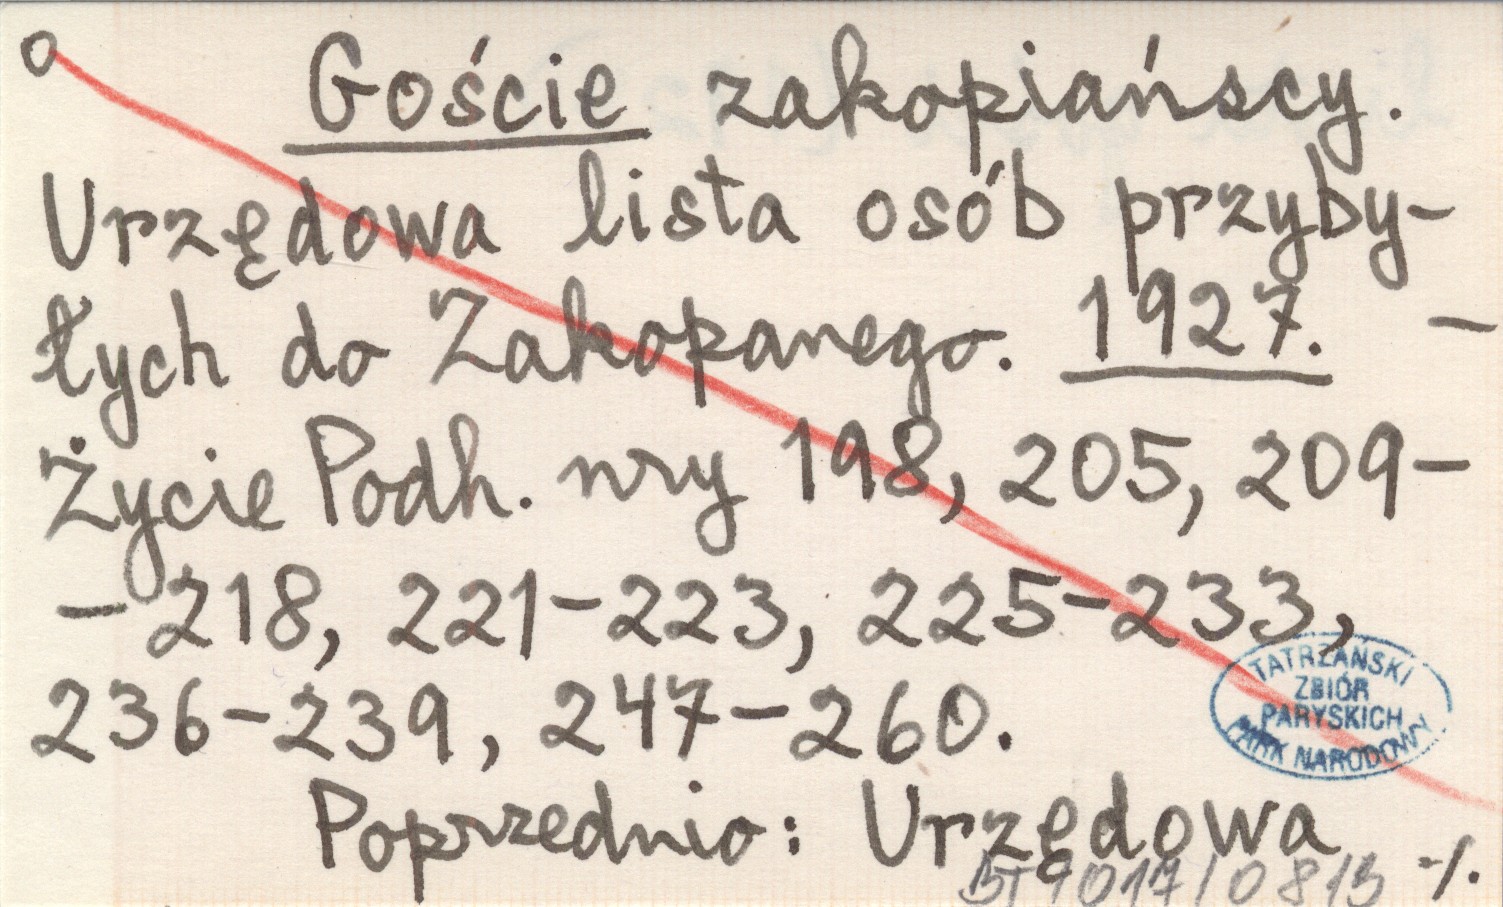 o Goście zakopiańscy.
Urzędowa lista osób przyby-
łych do Zakopanego. 1927. —
Życie Podh. nry 198, 205, 209-
-218, 221-223, 225-233,
236-239, 247-260.
TATRZAŃSKI
ZBIÓR
PARYSKICH
PARK NARODOWY
Poprzednio: Urzędowa
-/.